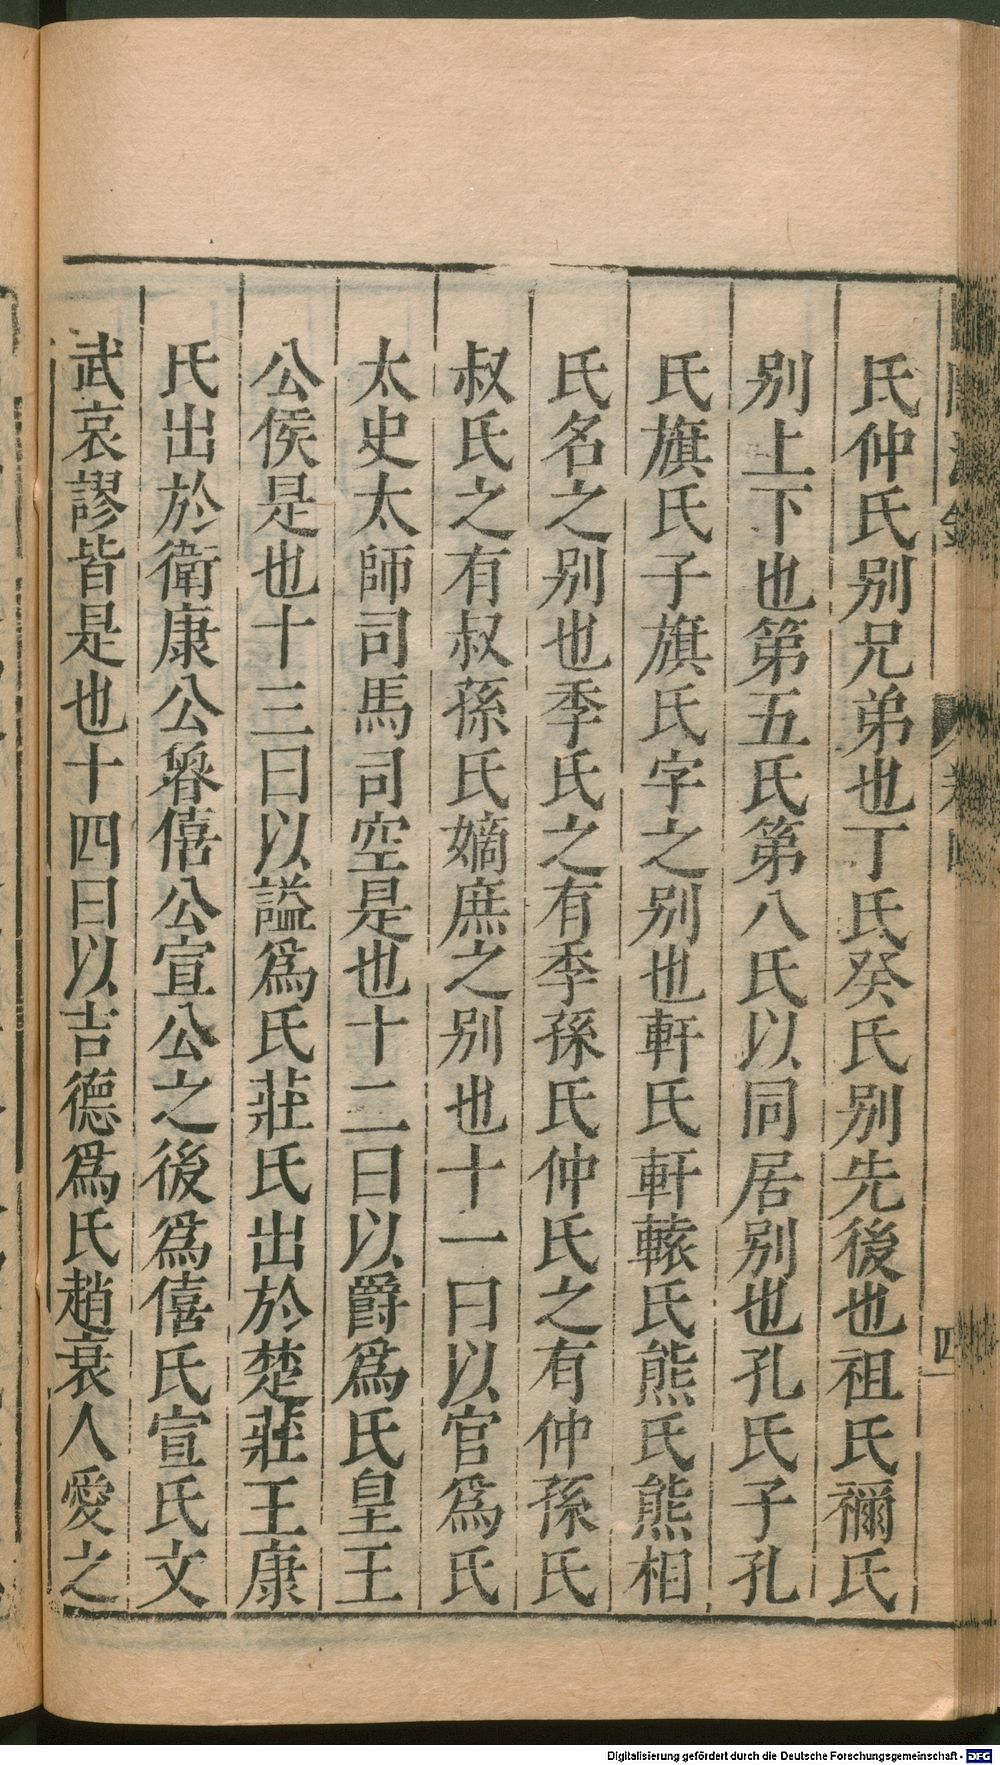 氏仲氏别兄弟也丁氏癸氏别先後也祖氏禰氏
别上下也第五氏第八氏以同居别也孔氏子孔
氏旗氏子旗氏字之别也軒氏軒轅氏熊氏熊相
氏名之别也季氏之有季孫氏仲氏之有仲孫氏
叔氏之有叔孫氏嫡庶之别也十一曰以官爲氏
太史太師司馬司空是也十二曰以爵爲氏皇王
公侯是也十三曰以謚爲氏莊氏出於楚莊王康
氏出於衛康公魯僖公宣公之後爲僖氏宣氏文
武哀謬皆是也十四曰以吉德爲氏趙衰人愛之
四
Digitalisierung gefördert durch die Deutsche Forschungsgemeinschaft - DFG